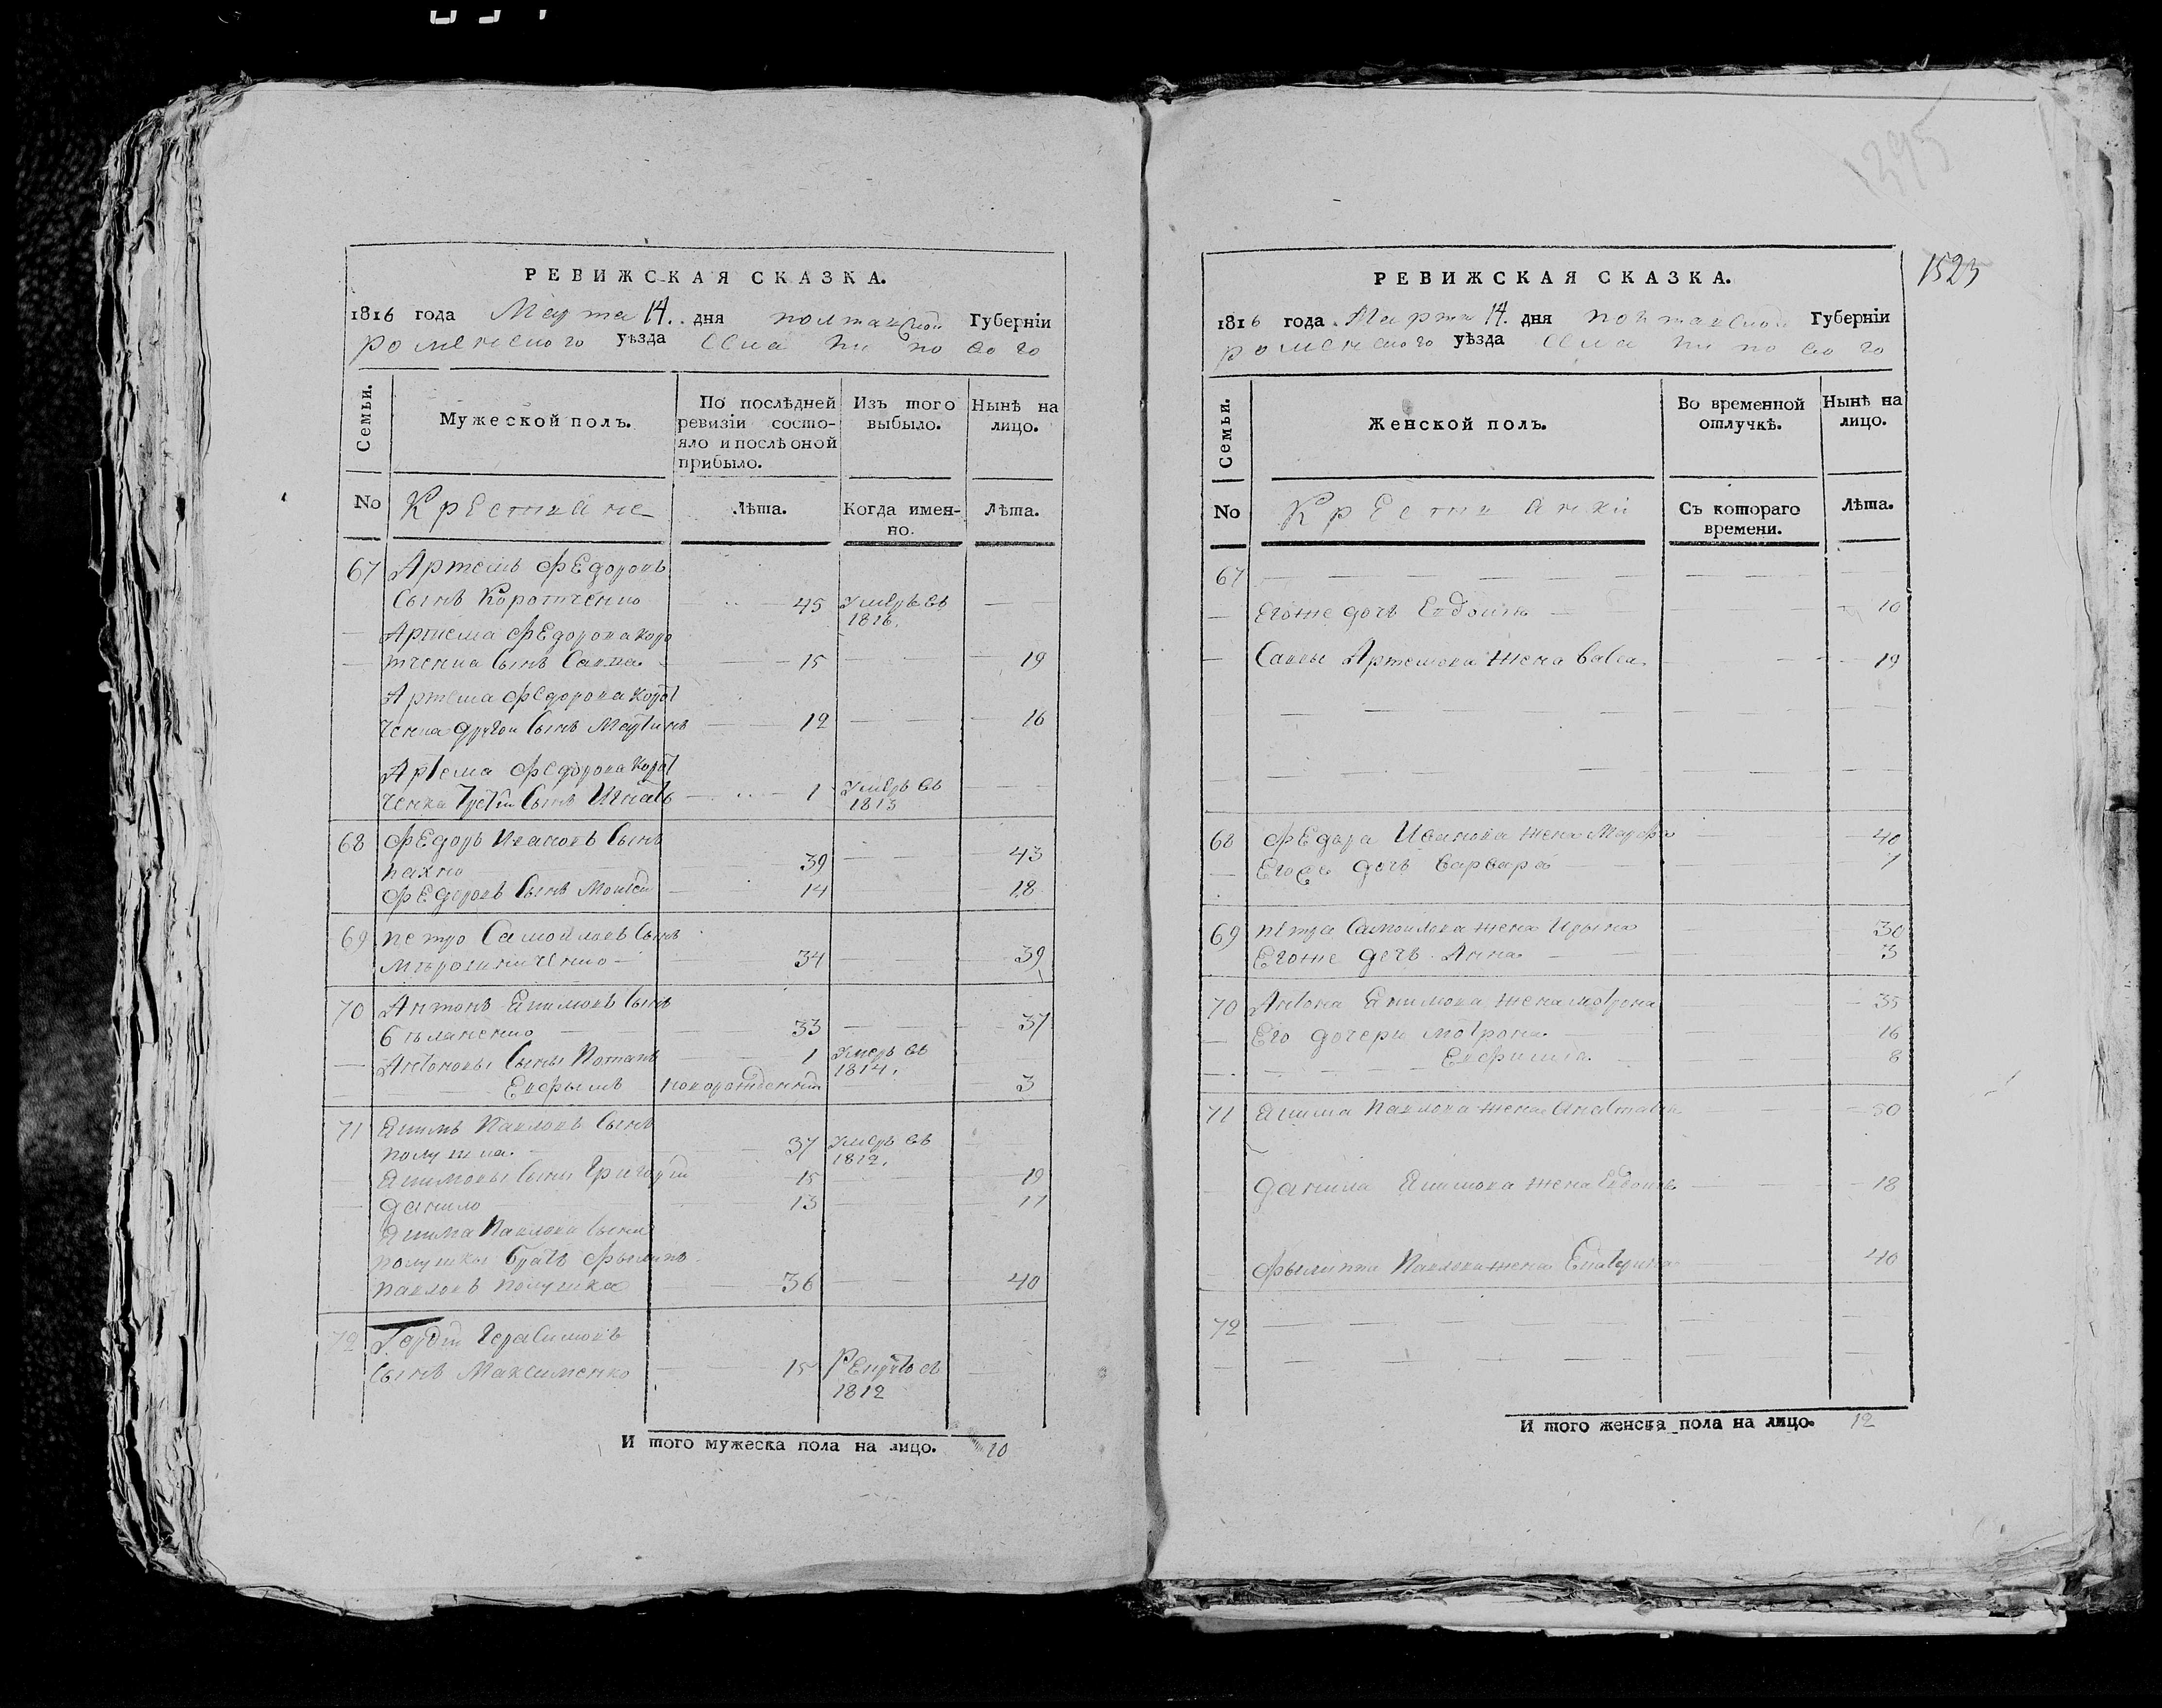 РЕВИЖСКАЯ СКАЗКА.
1816 года Марта 14. дня полтавской Губерніи
роменского уѣзда села
Семьи.
Мужеской полъ.
По послѣдней ревизіи состояло и послѣ оной прибыло.
Изъ того выбыло.
Нынѣ на лицо.
No
Крестьяне
Лѣта.
Когда именно.
Лѣта.
67 Артемъ Федоровъ
сынъ Коротченко 45 умеръ въ 1816. —
Артема Федорова коро
тченка сынъ Савва 15 — 19
Артема Федорова корот
ченка другой сынъ Мартинъ 12 — 16
Артема Федорова корот
ченка третій сынъ Игнатъ 1 умеръ въ 1813 —
68 Федоръ Ивановъ сынъ
пахно 39 — 43
Федоровъ сынъ Моисей 14 — 18
69 петро Самойловъ сынъ
34 — 39
70 Антонъ Екимовъ сынъ
бѣланенко 33 — 37
Антоновы сыны Потапъ 1 умеръ въ 1814.
Евфымъ новорожденный — 3
71 Екимъ Павловъ сынъ
полушка 37 умеръ въ 1812.
Екимовы сыны Григорій 15 — 19
данило 13 — 17
Екима Павлова сына
полушки братъ Фылипъ
павловъ полушка 36 — 40
72 Гордій Герасимовъ
сынъ Максименко 15 Рекрутъ съ 1812
И того мужеска пола на лицо. 10
1395
1523
РЕВИЖСКАЯ СКАЗКА.
1816 года Марта 14. дня полтавской Губерніи
роменского уѣзда села
Семьи.
Женской полъ.
Во временной отлучкѣ.
Нынѣ на лицо.
No
Крестьянки
Съ котораго времени.
Лѣта.
67
Егоже дочь Евдокия 10
Саввы Артемова жена Васса 19
68 Федора Иванова жена Марфа 40
Его дочь Варвара 7
69 петра Самойлова жена Ирына 30
Егоже дочь Анна 3
70 Антона Екимова жена мотрона 35
Его дочери мотрона 16
Евфимия 8
71 Екима Павлова жена 50
данила Екимова жена Евдокия 18
Фылиппа Павлова жена Екатерина 40
72
И того женска пола на лицо. 12